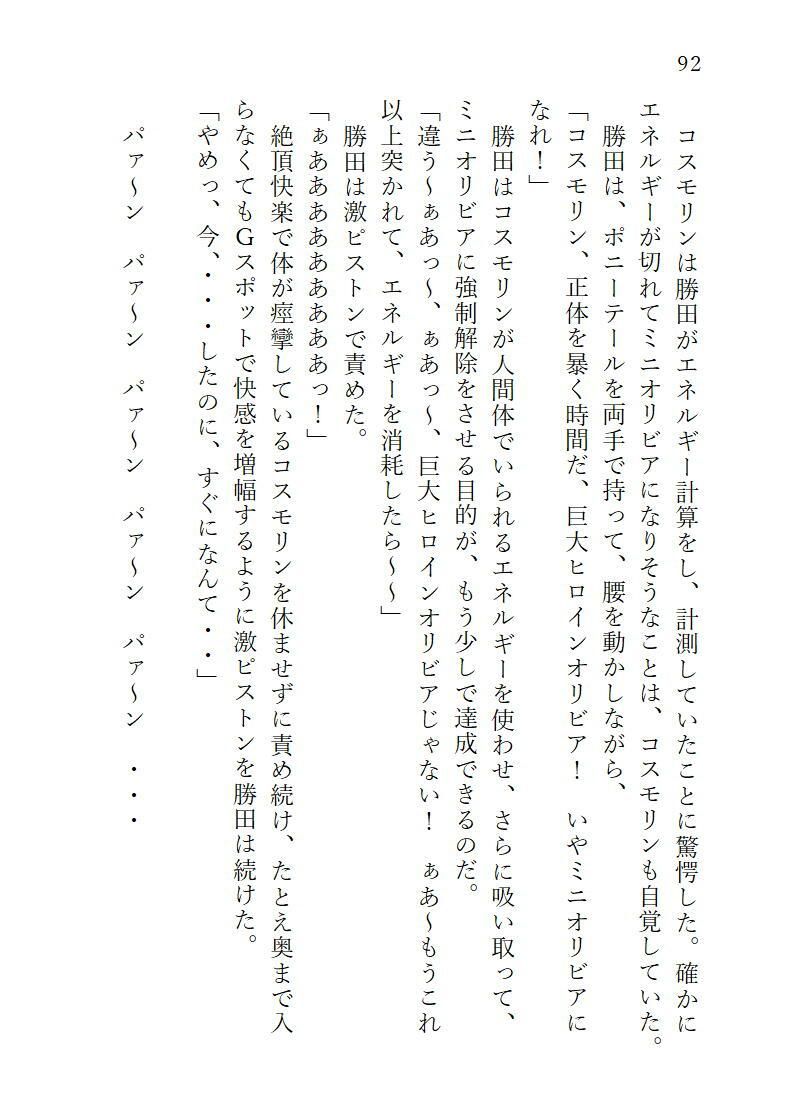 92
　コスモリンは勝田がエネルギー計算をし、計測していたことに驚愕した。確かに
エネルギーが切れてミニオリビアになりそうなことは、コスモリンも自覚していた。
　勝田は、ポニーテールを両手で持って、腰を動かしながら、
「コスモリン、正体を暴く時間だ、巨大ヒロインオリビア！　いやミニオリビアに
なれ！」
　勝田はコスモリンが人間体でいられるエネルギーを使わせ、さらに吸い取って、
ミニオリビアに強制解除をさせる目的が、もう少しで達成できるのだ。
「違う～ぁあっ～、ぁあっ～、巨大ヒロインオリビアじゃない！　ぁあ～もうこれ
以上突かれて、エネルギーを消耗したら～～」
　勝田は激ピストンで責めた。
「ぁああああああああああっ！」
　絶頂快楽で体が痙攣しているコスモリンを休ませずに責め続け、たとえ奥まで入
らなくてもＧスポットで快感を増幅するように激ピストンを勝田は続けた。
「やめっ、今、・・・したのに、すぐになんて・・」
　パァ～ン　パァ～ン　パァ～ン　パァ～ン　パァ～ン　・・・